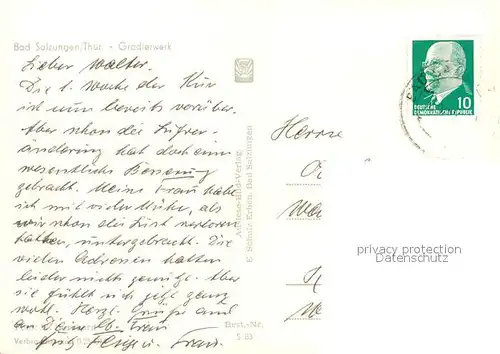 Bad Salzungen/Thür. • Gradierwerk
Lieber Walter.
Die 1. Woche der Kur
ist nun bereits vorüber.
Aber schon die Luftver-
änderung hat doch eine
wesentliche Besserung
gebracht. Meine Frau habe
ich mit vieler Mühe, als
wir schon die Lust verloren
hatten, untergebracht. Die
vielen Adressen hatten
leider nichts genützt. Aber
sie fühlt sich jetzt ganz
wohl. Herzl. Grüße auch
an Deine lb. Frau
Fritz u. Frau.
Verlag
E. Schulz Erben, Bad Salzungen
Best.-Nr.
S 83
Herrn
DEUTSCHE
DEMOKRATISCHE REPUBLIK
10
privacy protection
Datenschutz